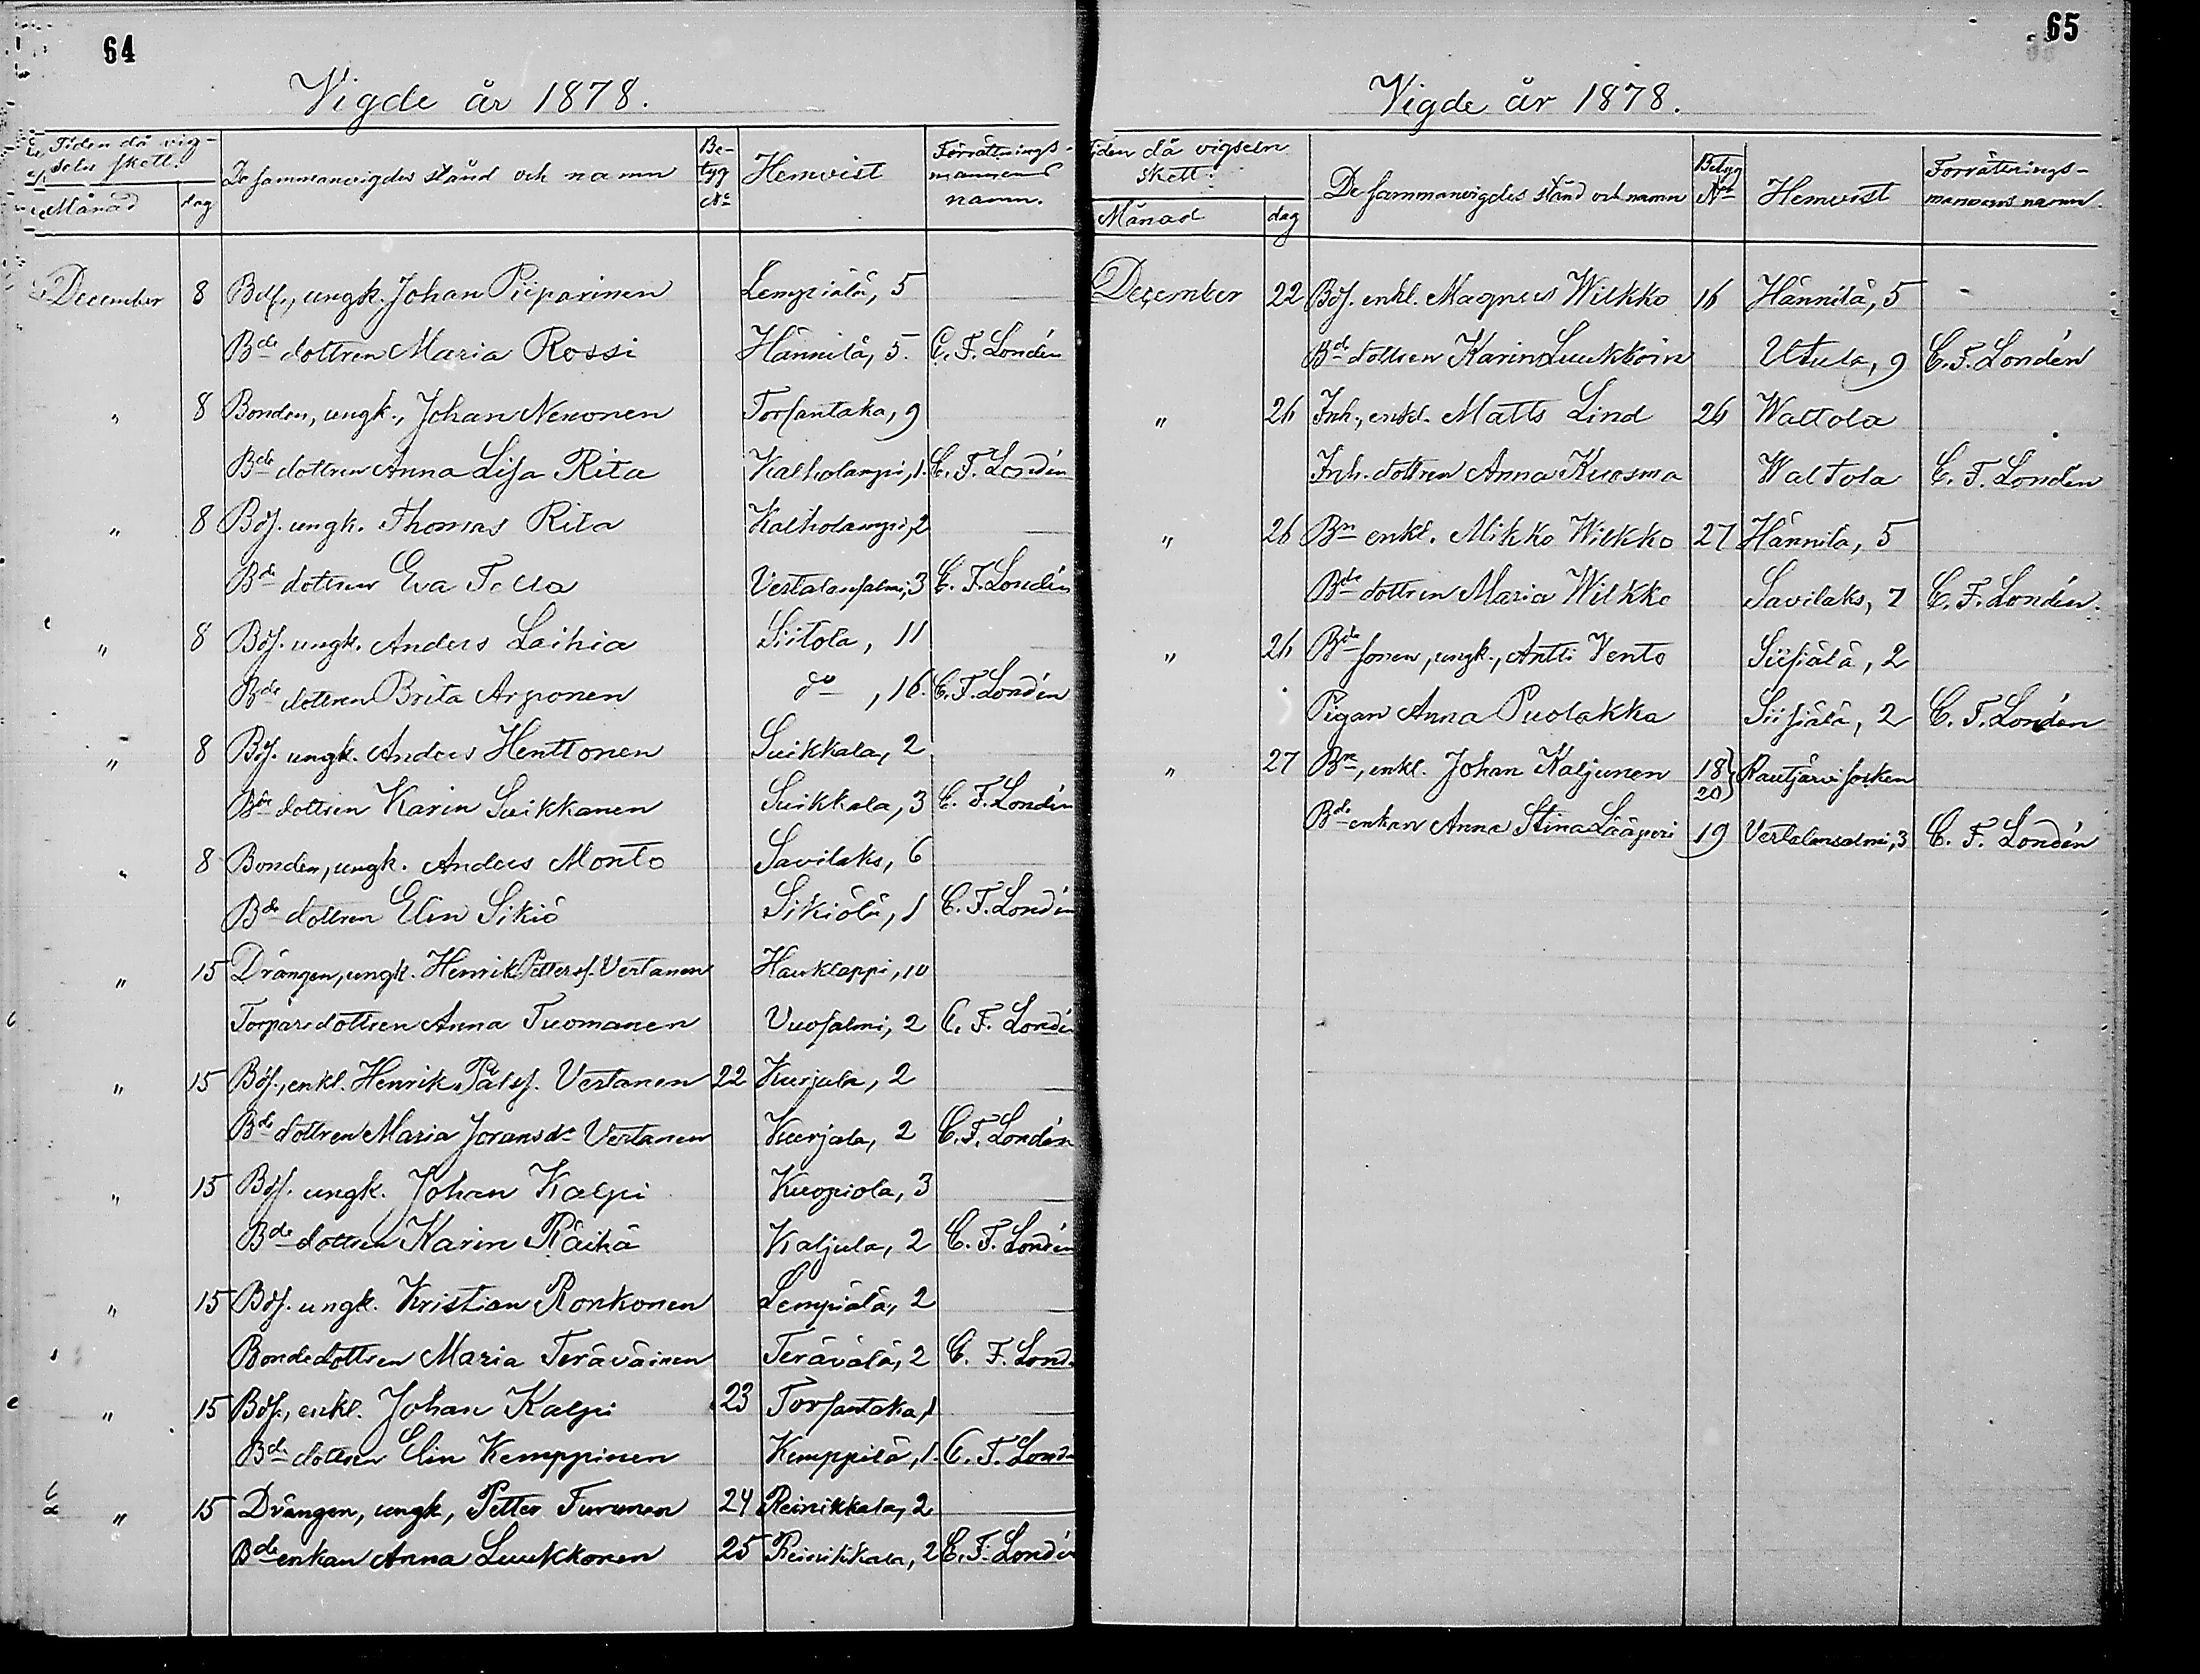 64
Vigde år 1878.
Tiden då vig-
seln skett.
Månad dag
De sammanvigdes stånd och namn
Be-
tyg
No
Hemvist
Förrättnings-
mannens
namn.
December 8 Bds., ungk. Johan Piiparinen Lempiälä, 5
Bde dottren Maria Rossi Hännilä, 5. C. F. Londén
" 8 Bonden, ungk., Johan Nenonen Torsantaka, 9
Bde dottren Anna Lisa Rita Kalholampi, 1. C. F. Londén
" 8 Bds. ungk. Thomas Rita Kalholampi, 2
Bde dottren Eva Tolla Vertalansalmi, 3 C. F. Londén
" 8 Bds. ungk. Anders Laihia Siitola, 11
Bde dottren Brita Arponen do, 16. C. F. Londén
" 8 Bds. ungk. Anders Henttonen Suikkala, 2
Bde dottren Karin Suikkanen Suikkala, 3 C. F. Londén
" 8 Bonden, ungk. Anders Monto Savilaks, 6
Bde dottren Elin Sikiö Sikiölä, 1 C. F. Londén
" 15 Drängen, ungk. Henrik Petters. Vertanen Haukkappi, 10
Torparedottren Anna Tuomanen Vuosalmi, 2 C. F. Londén
" 15 Bds., enkl. Henrik Påls. Vertanen 22 Kurjala, 2
Bde dottren Maria Joransdr Vertanen Kuerjala, 2 C. F. Londén
" 15 Bds. ungk. Johan Kalpi Kuopiola, 3
Bde dottren Karin Räihä Kaljula, 2 C. F. Londén
" 15 Bds. ungk. Kristian Ronkonen Lempiälä, 2
Bondedottren Maria Teräväinen Terävälä, 2 C. F. Lond
" 15 Bds., enkl. Johan Kalpi 23 Torsantaka, 1
Bde dottren Elin Kemppinen Kemppilä, 1. C. F. Lond
" 15 Drängen, ungk, Petter Turunen 24 Reinikkala, 2
Bde enkan Anna Luukkonen 25 Reinikkala, 2 C. F. Londén
65
Vigde år 1878.
Tiden då vigseln
skett.
Månad dag
De sammanvigdes stånd och namn
Betyg
No
Hemvist
Förrättnings-
mannens namn.
December 22 Bds. enkl. Magnus Wilkko 16 Hännilä, 5
Bde dottren Karin Luukkoin Utula, 9 C. F. Londén
" 26 Inh., enkl. Matts Lind 26 Waltola
Inh. dottren Anna Kuosma Waltola C. F. Londén
" 26 Bn enkl. Mikko Wilkko 27 Hännilä, 5
Bde dottren Maria Wilkko Savilaks, 7 C. F. Londén.
" 26 Bde sonen, ungk., Antti Vento Siisiälä, 2
Pigan Anna Puolakka Siisiälä, 2 C. F. Londén
" 27 Bn, enkl. Johan Kaljunen 18 } Rautjärvi socken
20
Bde enkan Anna Stina Lääperi 19 Vertalansalmi, 3 C. F. Londén